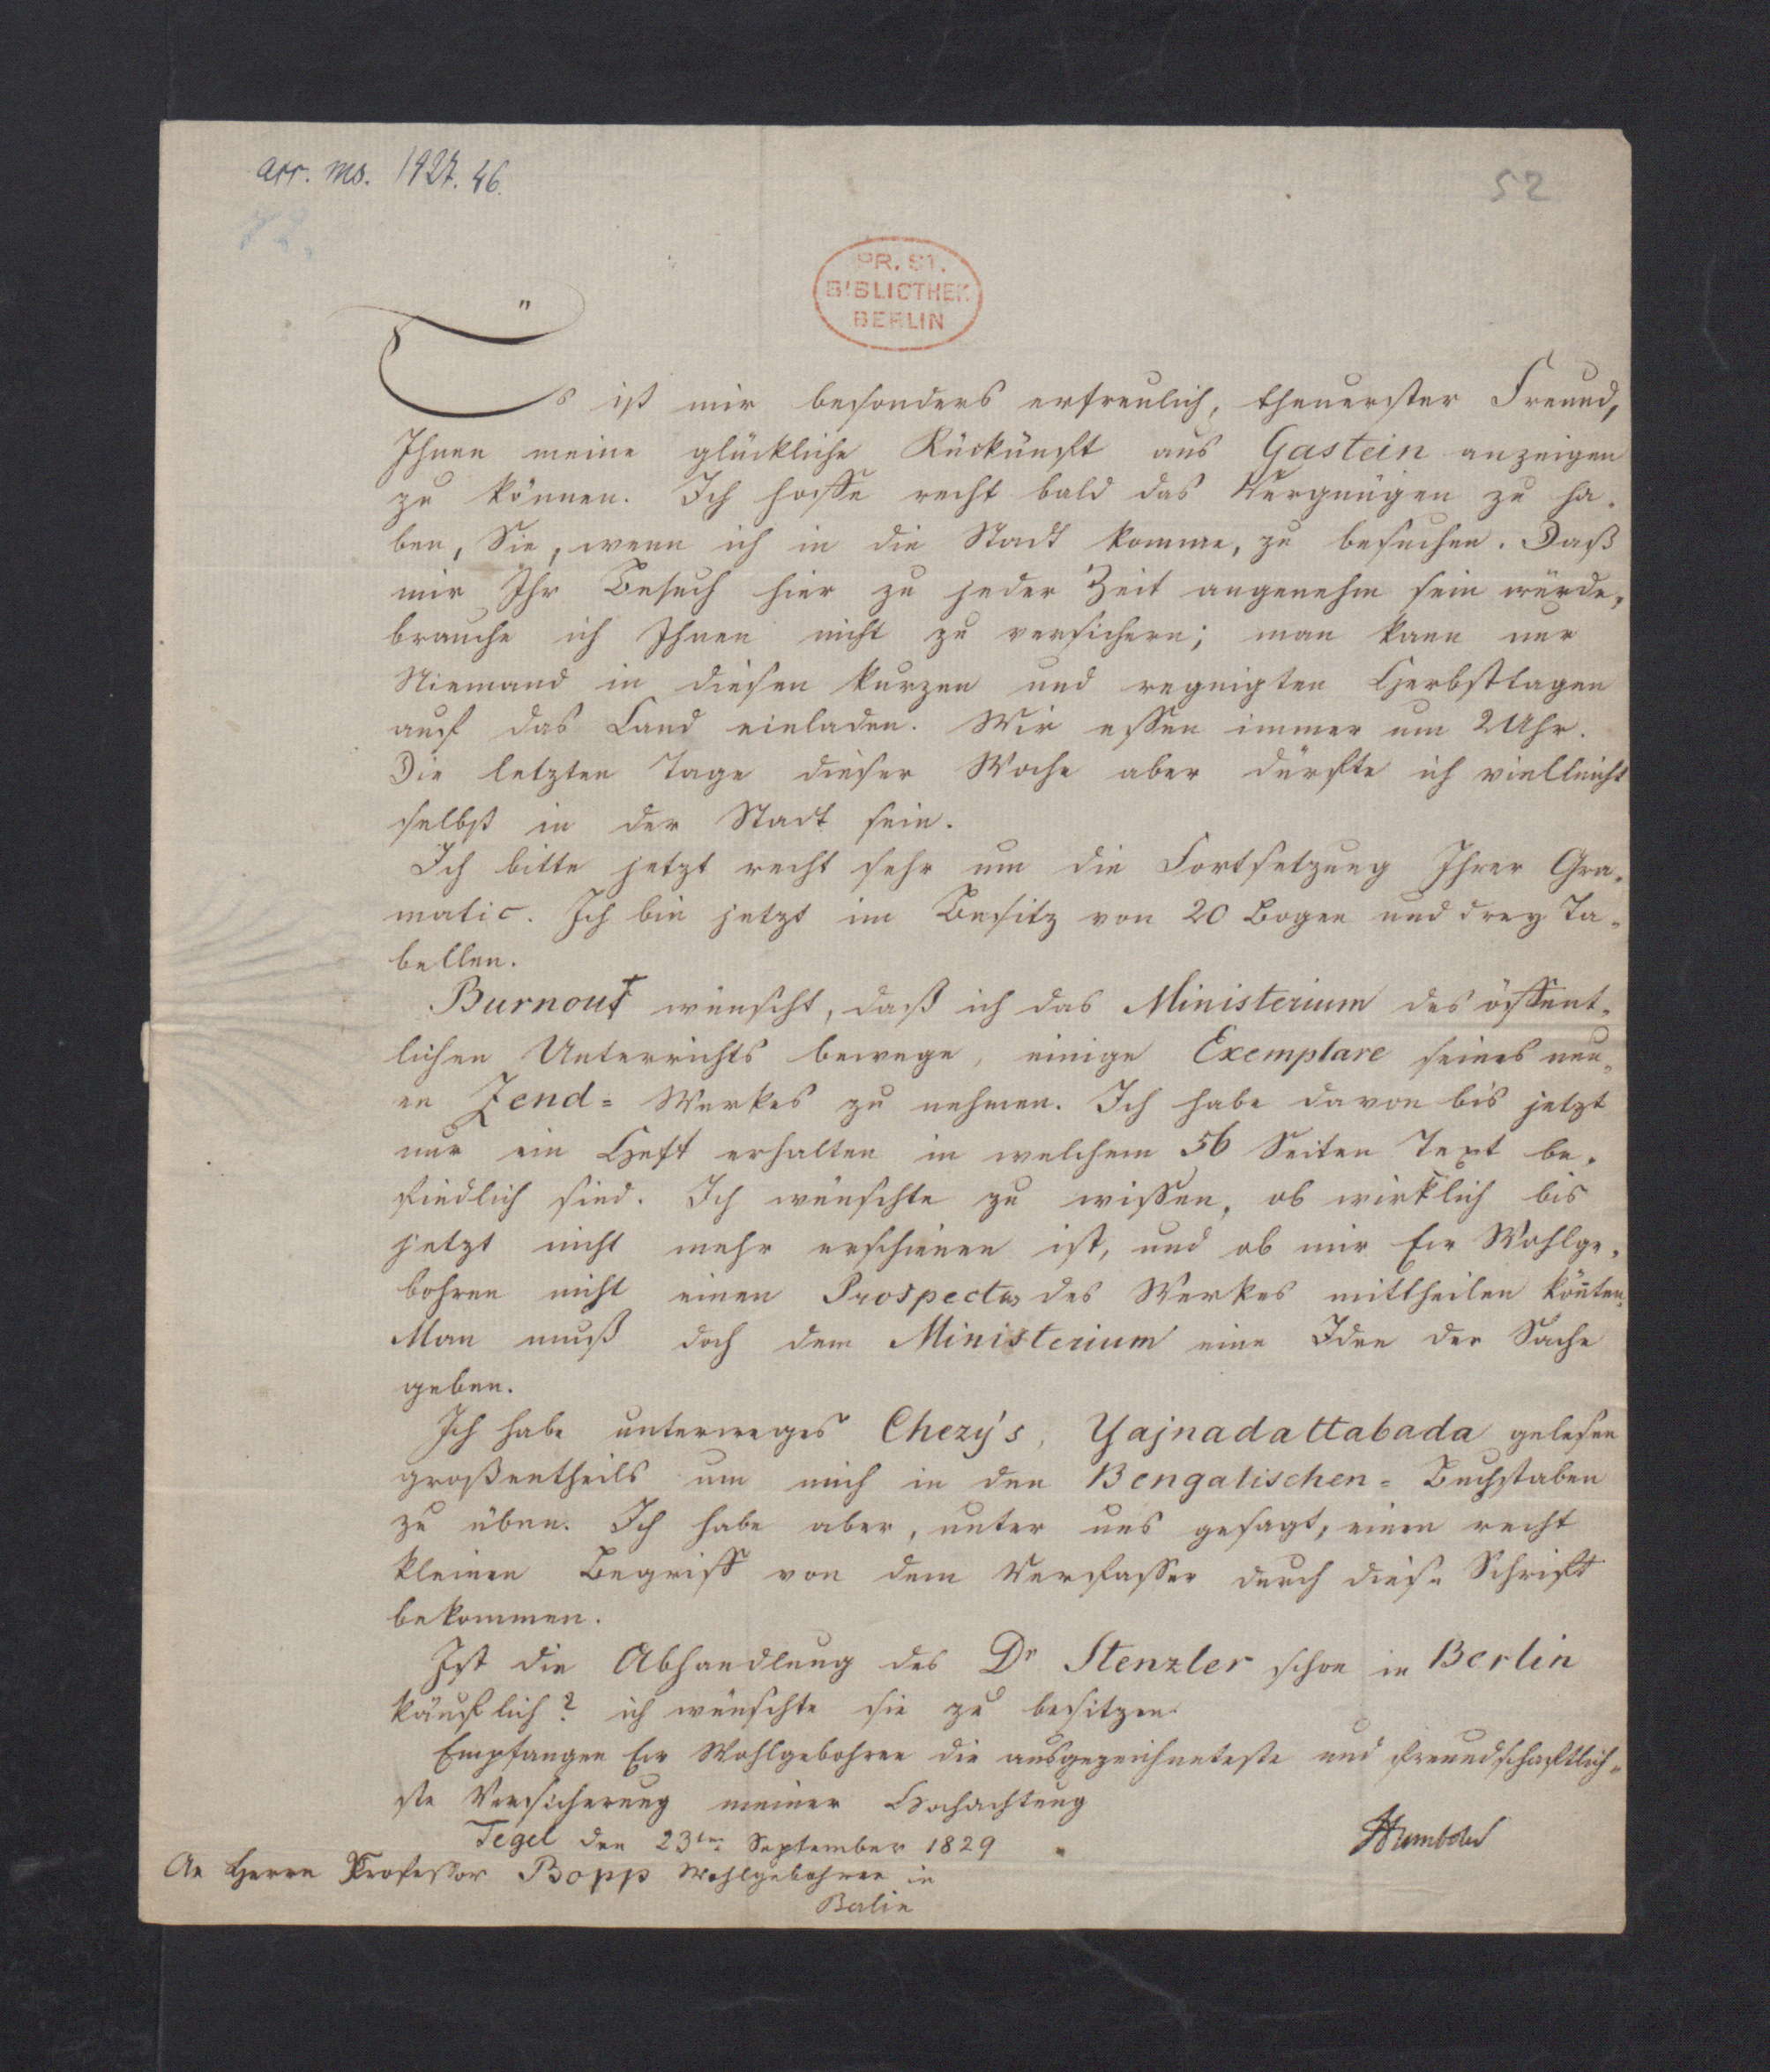 acc. ms. 1927. 46.
52
PR. ST.
BIBLIOTHEK
BERLIN
Es ist mir besonders erfreulich, theuerster Freund,
Ihnen meine glückliche Rückkünft aus Gastein anzeigen
zu können. Ich hoffe recht bald das Vergnügen zu ha-
ben, Sie, wenn ich in die Stadt komme, zu besuchen. Daß
mir Ihr Besuch hier zu jeder Zeit angenehm sein würde,
brauche ich Ihnen nicht zu versichern; man kann nur
Niemand in diesen kurzen und regnigten Herbsttagen
auf das Land einladen. Wir essen immer um 2 Uhr.
Die letzten Tage dieser Woche aber dürfte ich vielleicht
selbst in der Stadt sein.
Ich bitte jetzt recht sehr um die Fortsetzung Ihrer Gra-
matic. Ich bin jetzt im Besitz von 20 Bogen und drey Ta-
bellen.
Burnouf wünscht, daß ich das Ministerium des öffent-
lichen Unterrichts bewege, einige Exemplare seines neu-
en Zend- Werkes zu nehmen. Ich habe davon bis jetzt
nur ein Heft erhalten in welchem 56 Seiten Text be-
findlich sind. Ich wünschte zu wissen, ob wirklich bis
jetzt nicht mehr erschienen ist, und ob mir Ew Wohlge-
bohren nicht einen Prospectus des Werkes mittheilen kön̄ten.
Man muß doch dem Ministerium eine Idee der Sache
geben.
Ich habe unterweges Chezy's, Yajnadattabada gelesen
großentheils um mich in den Bengalischen- Buchstaben
zu üben. Ich habe aber, unter uns gesagt, einen recht
kleinen Begriff von dem Verfasser durch diese Schrift
bekommen.
Ist die Abhandlung des Dr Stenzler schon in Berlin
käuflich? ich wünschte sie zu besitzen.
Empfangen Ew Wohlgebohren die ausgezeichneteste und freundschaftlich-
ste Versicherung meiner Hochachtung
Tegel den 23ten September 1829
Humboldt
An Herrn Professor Bopp Wohlgebohren in
Berlin